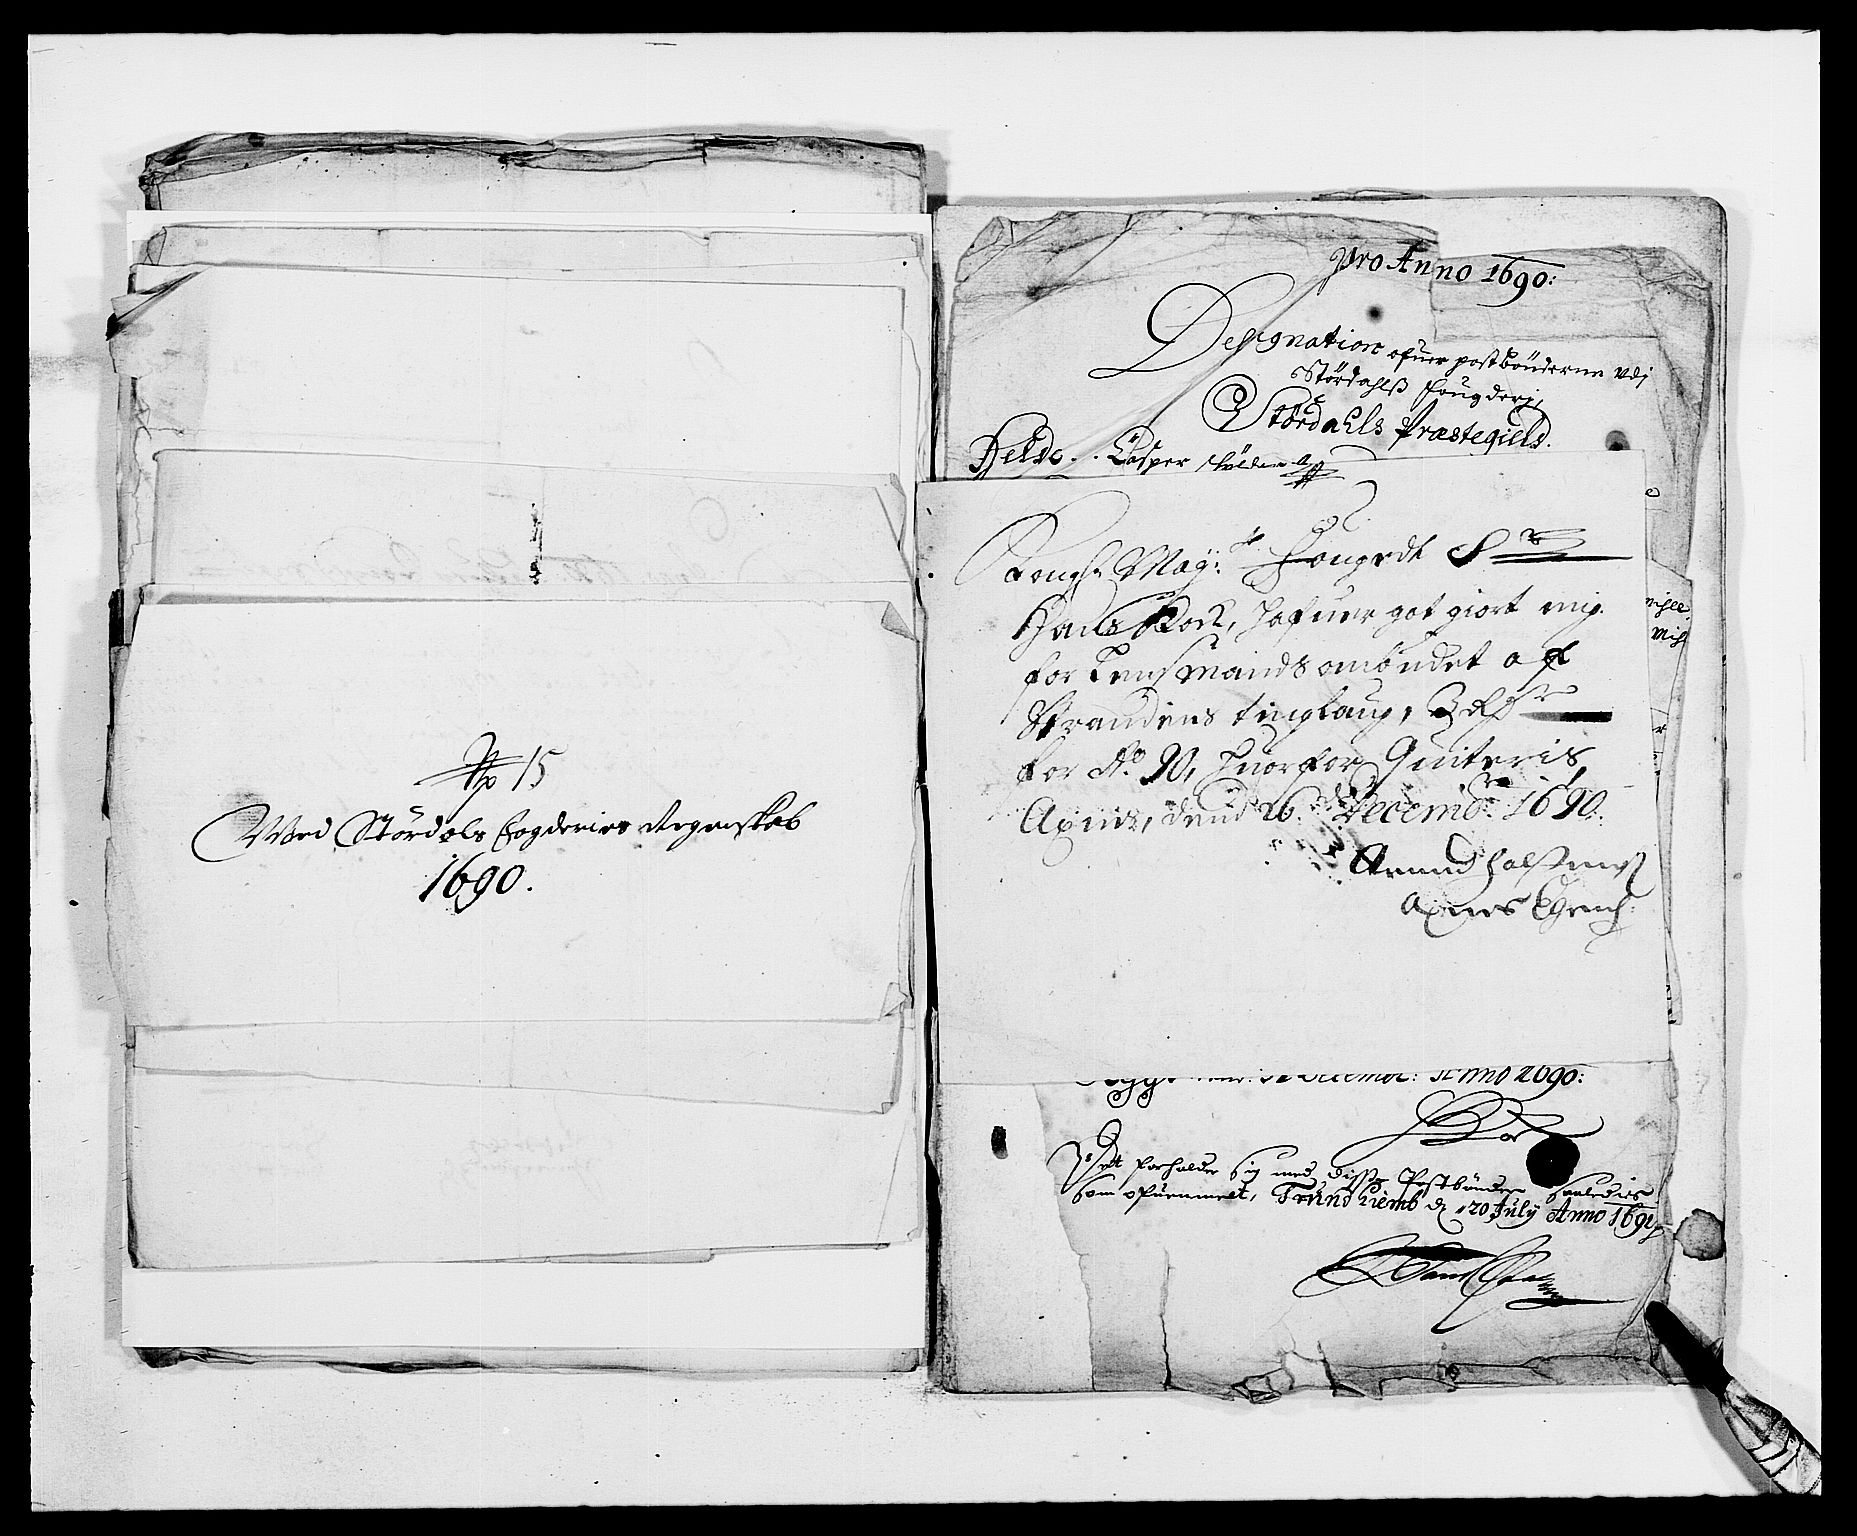 No 15
Wed Stördals Fogderies Regenskab
1690.
Pro Anno 1690:
Designation ofuer postbönderne udj
Stördahlß fougderj,
Stördahls Præstegield.
Helde.. Casper
Kongl: May: Fougedt Sr
Hans Kock, hafuer got giort mig
for Lensmands ombudet af
Strandens tinglaug, 3 rdr
for Ao. 90, huorfor Quiteris,
Axnes, dend 26. Decembr: 1690.
Arund
Axnes Egenh:
Decembr: Anno 1690:
Ret forholder sig med disse Postbönder saaledies
som ofuenmelt, Trundhiemb d. 20 July Anno 1691